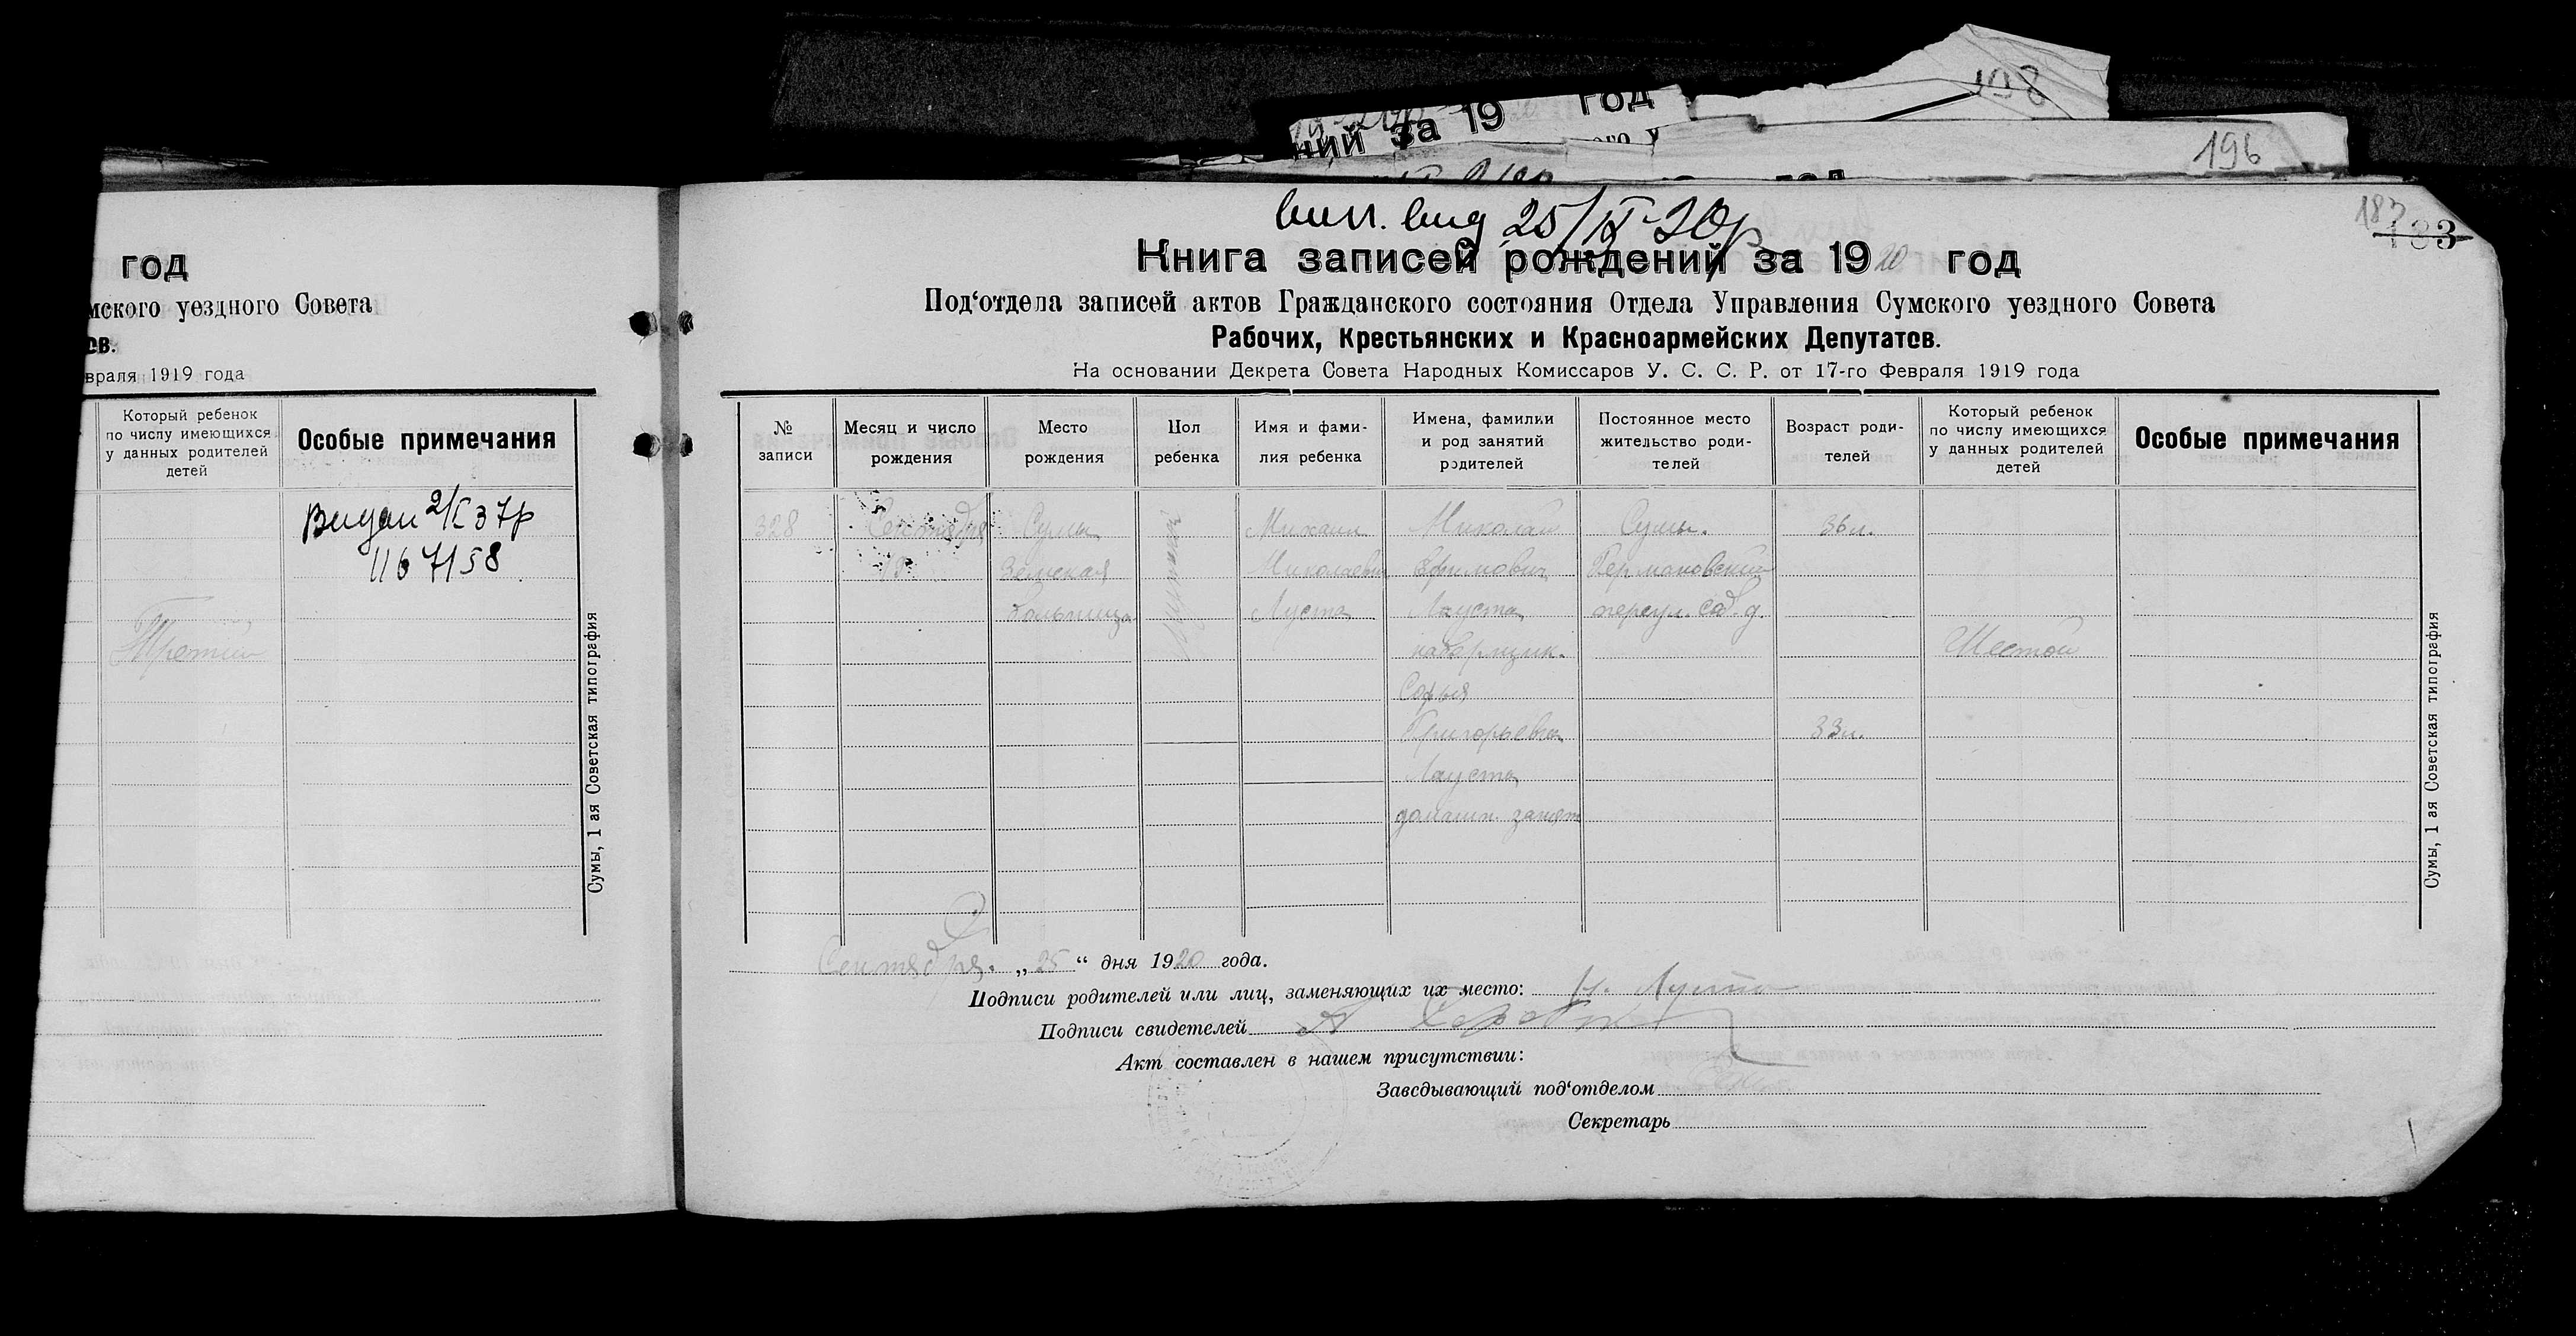 198
ний за 19 год
196
год
мского уездного Совета
ов.
враля 1919 года
Который ребенок
по числу имеющихся
у данных родителей
детей
Особые примечания
Видан 2/X 37р
1167158
Третий
Сумы, 1 ая Советская типография
183
183
вип. вид 25/IX-30р
Книга записей рождений за 1920 год
Под‘отдела записей актов Гражданского состояния Отдела Управления Сумского уездного Совета
Рабочих, Крестьянских и Красноармейских Депутатов.
На основании Декрета Совета Народных Комиссаров У. С. С. Р. от 17-го Февраля 1919 года
№
записи
Месяц и число
рождения
Место
рождения
Пол
ребенка
Имя и фами-
лия ребенка
Имена, фамилии
и род занятий
родителей
Постоянное место
жительство роди-
телей
Возраст роди-
телей
Который ребенок
по числу имеющихся
у данных родителей
детей
Особые примечания
328
Сентября
19
Сумы
Земская
больница
Михаил
Николаевич
Луста
Николай
Ефимович
Луста
наборщик.
Софья
Григорьевна
Луста
домашн. занят
Сумы.
переул. соб. д.
36 л.
33 л.
Шестой
Сентября „25“ дня 1920 года.
Подписи родителей или лиц, заменяющих их место: Н. Луста
Подписи свидетелей
Акт составлен в нашем присутствии:
Заведывающий под‘отделом
Секретарь
Сумы, 1 ая Советская типография